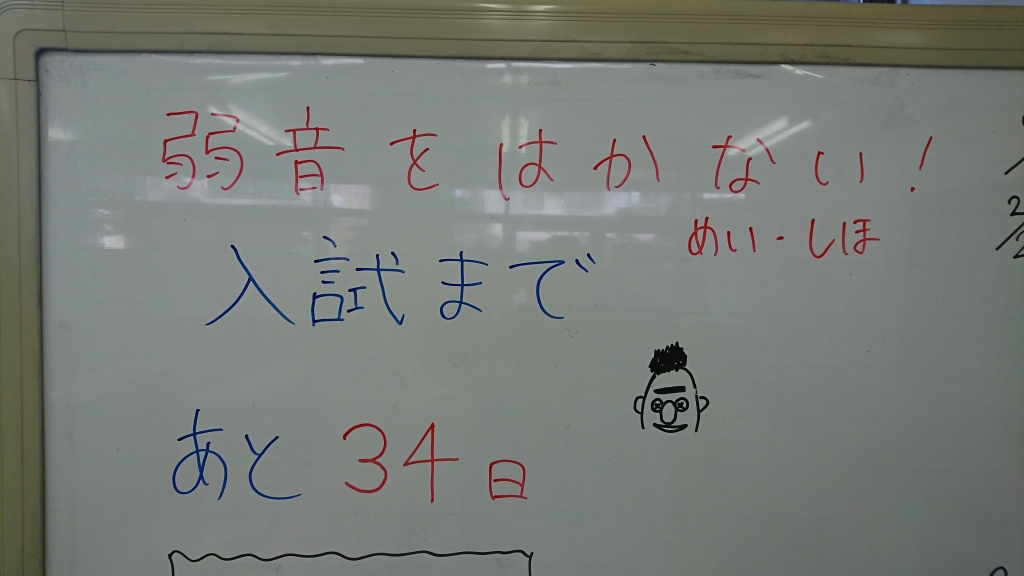 弱音をはかない!
めい・しほ
入試まで
あと34日